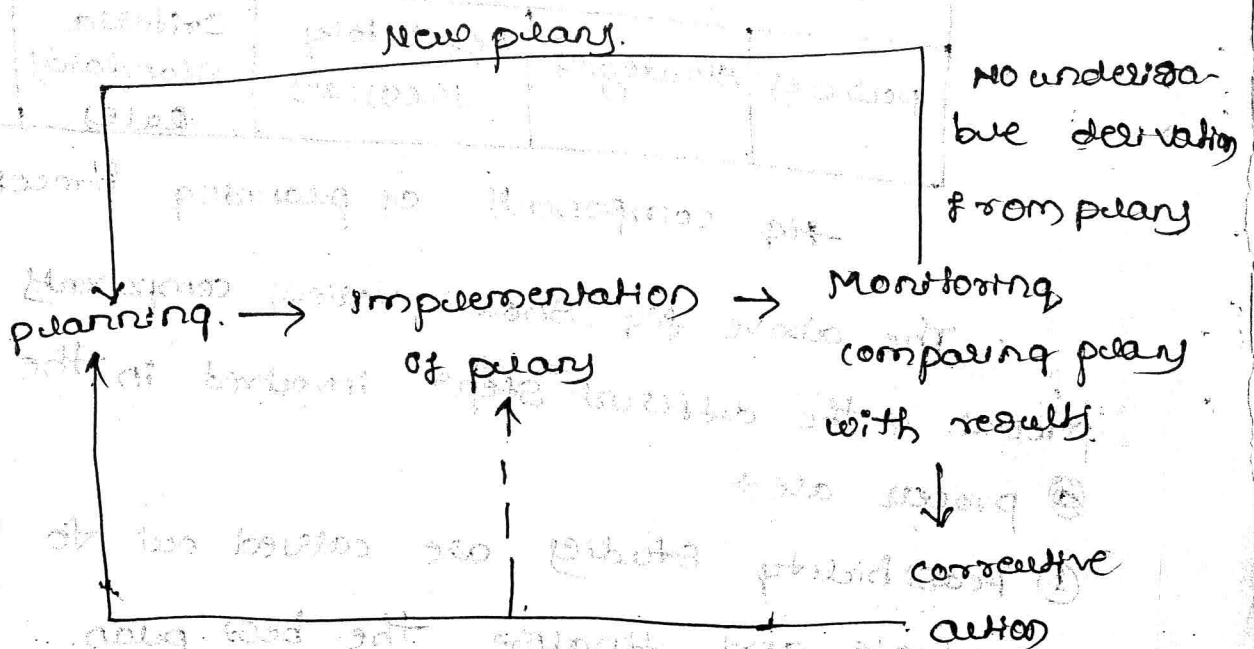 New plans.
No undesira-
ble derivation
from plans
planning. → Implementation → Monitoring
of plans
comparing plans
with results.
↓
corrective
action